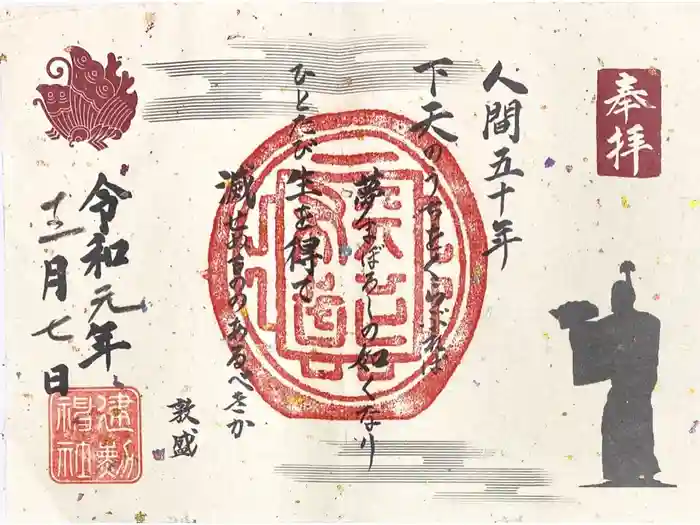 奉拝
人間五十年
下天のうちをくらぶれば
夢まぼろしの如くなり
ひとたび生を得て
滅せぬもののあるべきか
敦盛
天下布武
令和元年
十二月七日
建勲神社